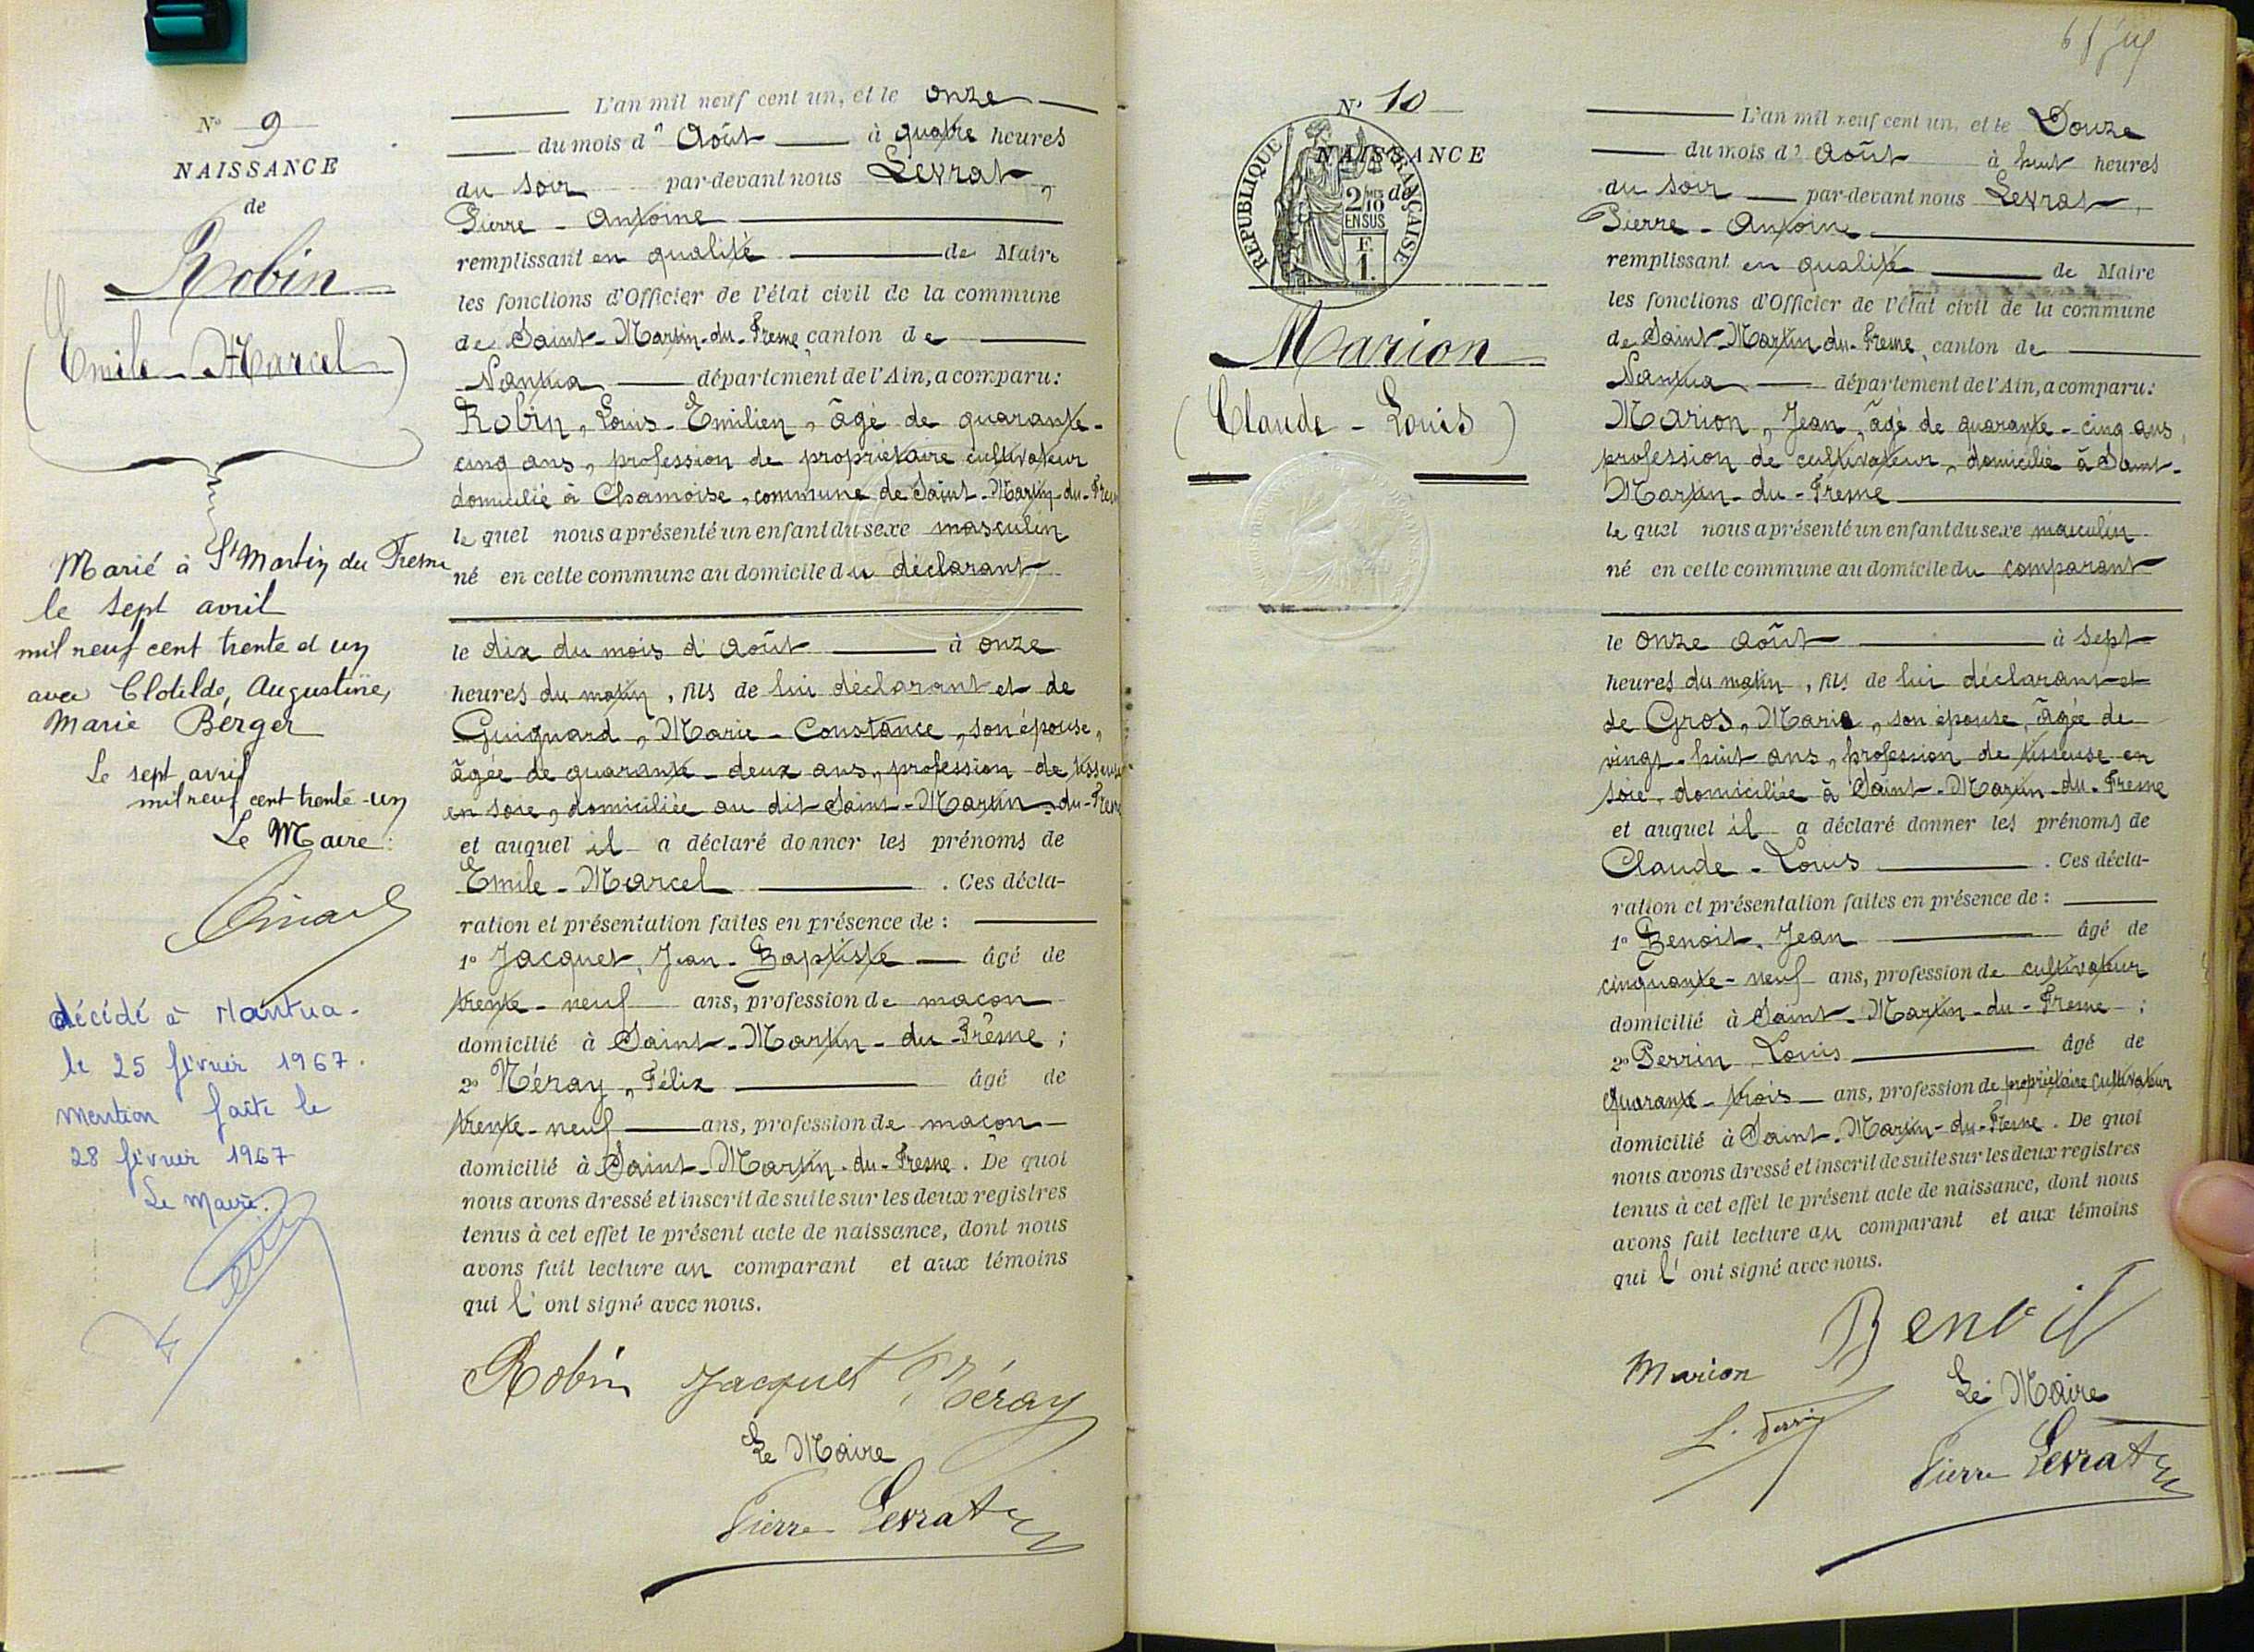 Nº 9
NAISSANCE
de
Robin
(Emile - Marcel)
Marié à St Martin du Fresne
le sept avril
mil neuf cent trente et un
avec Clotilde, Augustine,
Marie Berger
Le sept avril
mil neuf cent trente-un
Le Maire:
décédé à Nantua.
le 25 février 1967.
mention faite le
28 février 1967
Le Maire.
L'an mil neuf cent un, et le onze
du mois d' Août à quatre heures
du soir par-devant nous Levrat,
Pierre - Antoine
remplissant en qualité de Maire
les fonctions d'Officier de l'état civil de la commune
de Saint-Martin-du-Frene, canton de
Nantua département de l'Ain, a comparu:
Robin, Louis-Emilien, âgé de quarante-
cinq ans, profession de propriétaire cultivateur
domicilié à Chamoise, commune de Saint-Martin-du-Fren
le quel nous a présenté un enfant du sexe masculin
né en cette commune au domicile du déclarant
le dix du mois d'août à onze
heures du matin, fils de lui déclarant et de
Guignard, Marie-Constance, son épouse,
âgée de quarante-deux ans, profession de tisseuse
en soie, domiciliée au dit Saint-Martin-du-Frene
et auquel il a déclaré donner les prénoms de
Emile-Marcel . Ces décla-
ration et présentation faites en présence de :
1º Jacquet, Jean-Baptiste âgé de
trente-neuf ans, profession de maçon
domicilié à Saint-Martin-du-Frêne ;
2º Néray, Félix âgé de
trente-neuf ans, profession de maçon
domicilié à Saint-Martin-du-Fresne. De quoi
nous avons dressé et inscrit de suite sur les deux registres
tenus à cet effet le présent acte de naissance, dont nous
avons fait lecture au comparant et aux témoins
qui l' ont signé avec nous.
Robin Jacquet Néray
Le Maire
Pierre Levrat
Nº 10
NAISSANCE
de
RÉPUBLIQUE FRANÇAISE
2/10
EN SUS
F.
1.
Marion
(Claude - Louis)
L'an mil neuf cent un, et le Douze
du mois d' Août à huit heures
du soir par-devant nous Levrat,
Pierre - Antoine
remplissant en qualité de Maire
les fonctions d'Officier de l'état civil de la commune
de Saint-Martin-du-Frene, canton de
Nantua département de l'Ain, a comparu:
Marion, Jean, âgé de quarante-cinq ans,
profession de cultivateur, domicilié à Saint-
Martin-du-Frene
le quel nous a présenté un enfant du sexe masculin
né en cette commune au domicile du comparant
le onze août à sept
heures du matin, fils de lui déclarant et
de Gros, Marie, son épouse, âgée de
vingt-huit ans, profession de tisseuse en
soie, domiciliée à Saint-Martin-du-Frene
et auquel il a déclaré donner les prénoms de
Claude-Louis . Ces décla-
ration et présentation faites en présence de :
1º Benoit, Jean âgé de
cinquante-neuf ans, profession de cultivateur
domicilié à Saint-Martin-du-Frene ;
2º Perrin, Louis âgé de
quarante-trois ans, profession de propriétaire cultivateur
domicilié à Saint-Martin-du-Frene. De quoi
nous avons dressé et inscrit de suite sur les deux registres
tenus à cet effet le présent acte de naissance, dont nous
avons fait lecture au comparant et aux témoins
qui l' ont signé avec nous.
Benoit
Marion
Le Maire
L. Perrin
Pierre Levrat